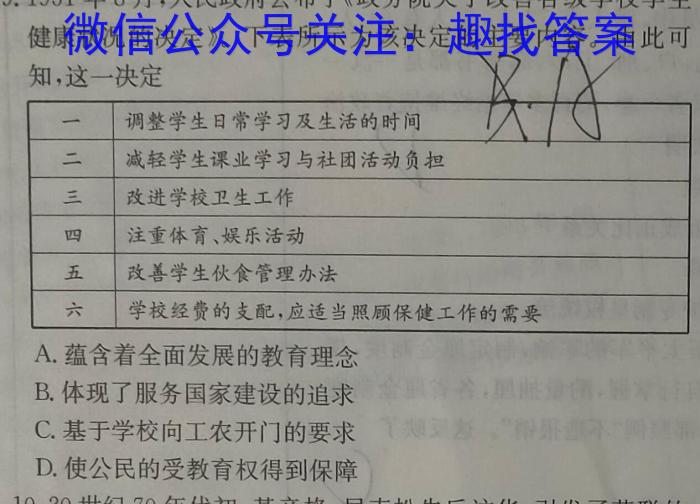 9. 1951年8月,人民政府公布了《政务院关于改善各级学校学生
健康状况的决定》。下表所示为该决定的主要内容。由此可
微信公众号关注：趣找答案
知,这一决定
一 调整学生日常学习及生活的时间
二 减轻学生课业学习与社团活动负担
三 改进学校卫生工作
四 注重体育、娱乐活动
五 改善学生伙食管理办法
六 学校经费的支配,应适当照顾保健工作的需要
A. 蕴含着全面发展的教育理念
B. 体现了服务国家建设的追求
C. 基于学校向工农开门的要求
D. 使公民的受教育权得到保障
10. 20世纪70年代初,基辛格、尼克松先后访华